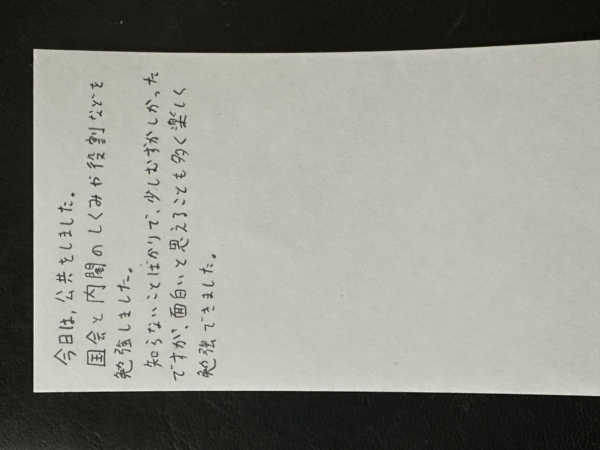 今日は、公共をしました。
国会と内閣のしくみや役割などを
勉強しました。
知らないことばかりで、少しむずかしかった
ですが、面白いと思えることも多く楽しく
勉強できました。